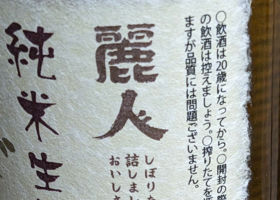 ○飲酒は20歳になってから。○開封の際
の飲酒は控えましょう。○搾りたてを
ますが品質には問題ございません。
麗人
しぼりた
詰しまし
おいしさ
純米生